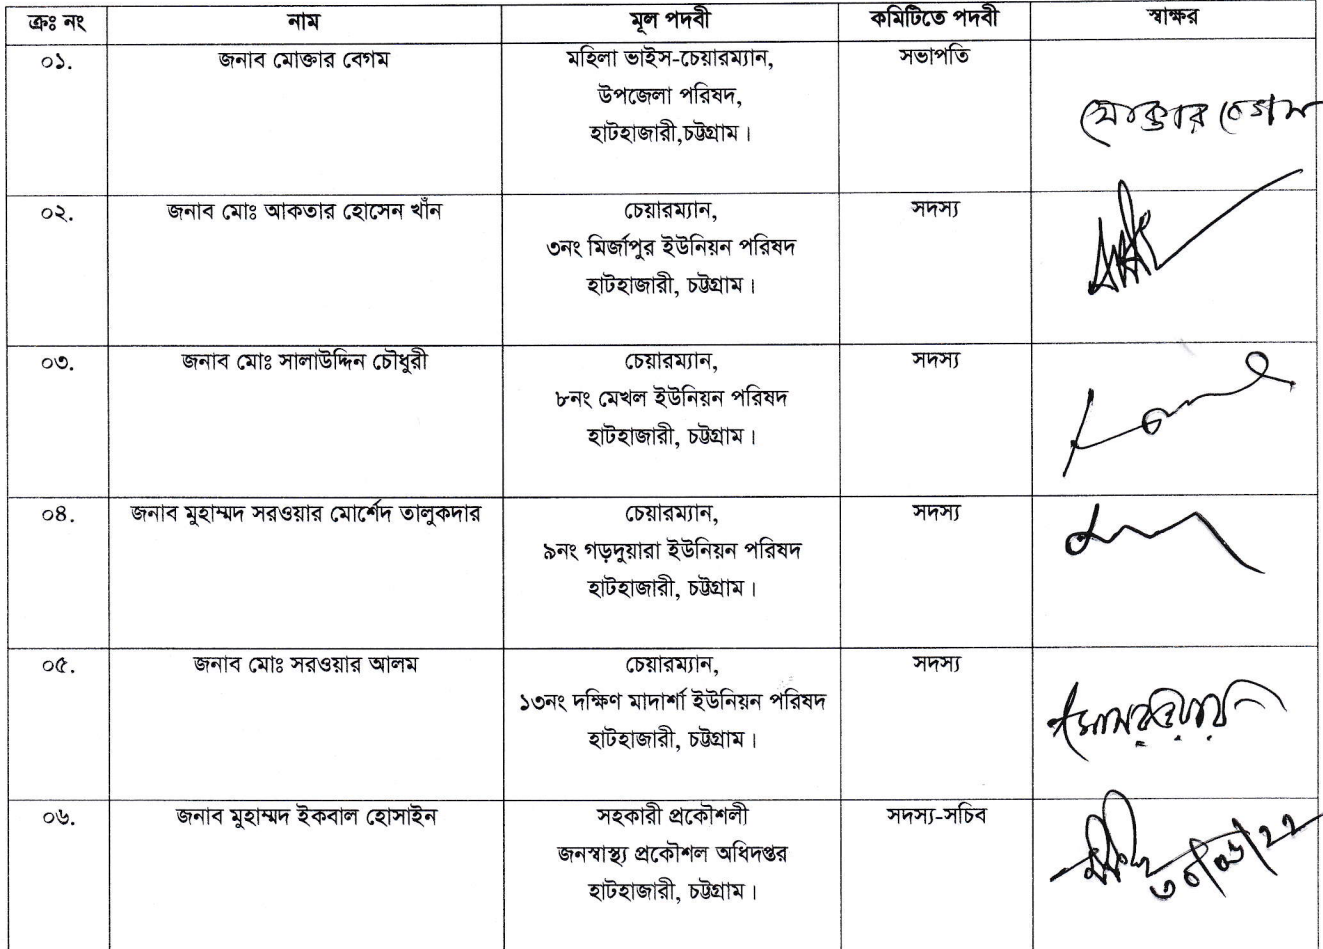 ক্রঃ নং নাম মূল পদবী কমিটিতে পদবী স্বাক্ষর
০১. জনাব মোক্তার বেগম মহিলা ভাইস-চেয়ারম্যান, সভাপতি
উপজেলা পরিষদ,
হাটহাজারী,চট্টগ্রাম।
মোক্তার বেগম
০২. জনাব মোঃ আকতার হোসেন খাঁন চেয়ারম্যান, সদস্য
৩নং মির্জাপুর ইউনিয়ন পরিষদ
হাটহাজারী, চট্টগ্রাম।
০৩. জনাব মোঃ সালাউদ্দিন চৌধুরী চেয়ারম্যান, সদস্য
৮নং মেখল ইউনিয়ন পরিষদ
হাটহাজারী, চট্টগ্রাম।
০৪. জনাব মুহাম্মদ সরওয়ার মোর্শেদ তালুকদার চেয়ারম্যান, সদস্য
৯নং গড়দুয়ারা ইউনিয়ন পরিষদ
হাটহাজারী, চট্টগ্রাম।
০৫. জনাব মোঃ সরওয়ার আলম চেয়ারম্যান, সদস্য
১৩নং দক্ষিণ মাদার্শা ইউনিয়ন পরিষদ
হাটহাজারী, চট্টগ্রাম।
০৬. জনাব মুহাম্মদ ইকবাল হোসাইন সহকারী প্রকৌশলী সদস্য-সচিব
জনস্বাস্থ্য প্রকৌশল অধিদপ্তর
হাটহাজারী, চট্টগ্রাম।
৩০/০৬/২২